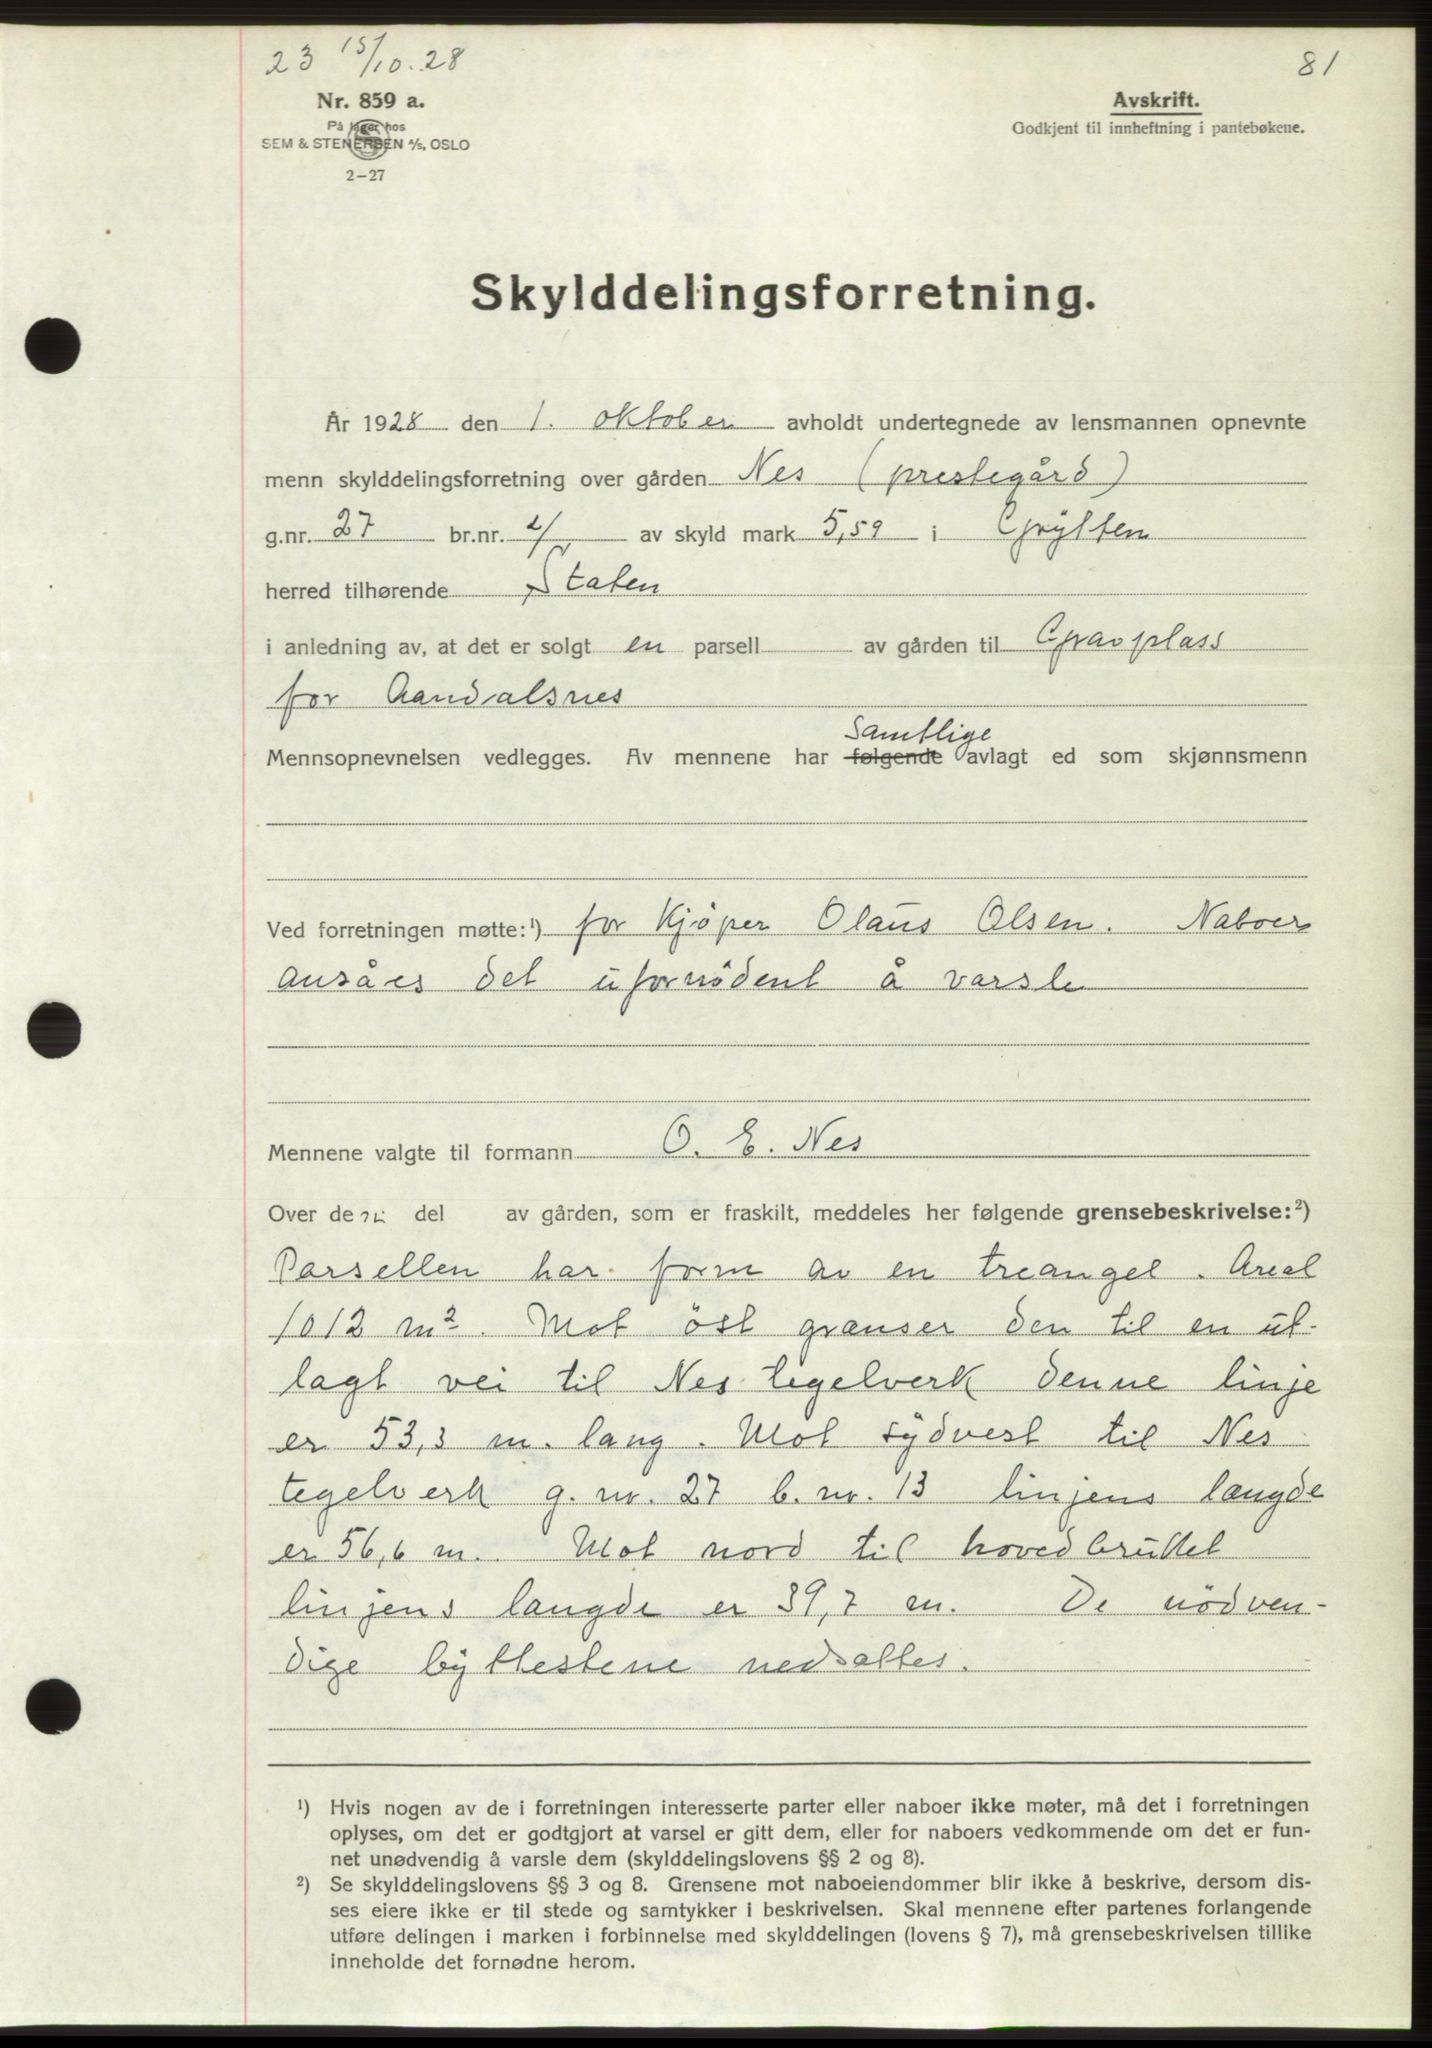 23 15/10.28
81
Nr. 859 a.
På lager hos
SEM & STENERSEN A/S, OSLO
2–27
Avskrift.
Godkjent til innheftning i pantebøkene.
Skylddelingsforretning.
År 1928 den 1. oktober avholdt undertegnede av lensmannen opnevnte
menn skylddelingsforretning over gården Nes (prestegård)
g.nr. 27 br.nr. av skyld mark 5,59 i Grÿtten
herred tilhørende Staten
i anledning av, at det er solgt en parsell av gården til Gravplass
for Aandalsnes
Samtlige
Mennsopnevnelsen vedlegges. Av mennene har følgende avlagt ed som skjønnsmenn
Ved forretningen møtte:¹) for Kjöper Olaus Olsen. Naboer
ansåes det ufornödent å varsle
Mennene valgte til formann O. E. Nes
Over den del av gården, som er fraskilt, meddeles her følgende grensebeskrivelse:²)
Parsellen har form av en treangel. Areal
1012 m². Mot öst grænser den til en ut-
lagt vei til Nes tegelverk denne linje
er 53,3 m. lang. Mot sÿdvest til Nes
tegelverk g. nr. 27 b. nr. 13 linjens længde
er 56,6 m. Mot nord til hovedbruket
linjens længde er 39,7 m. De nödven-
dige bÿttestene nedsattes.
¹) Hvis nogen av de i forretningen interesserte parter eller naboer ikke møter, må det i forretningen
oplyses, om det er godtgjort at varsel er gitt dem, eller for naboers vedkommende om det er fun-
net unødvendig å varsle dem (skylddelingslovens §§ 2 og 8).
²) Se skylddelingslovens §§ 3 og 8. Grensene mot naboeiendommer blir ikke å beskrive, dersom dis-
ses eiere ikke er til stede og samtykker i beskrivelsen. Skal mennene efter partenes forlangende
utføre delingen i marken i forbinnelse med skylddelingen (lovens § 7), må grensebeskrivelsen tillike
inneholde det fornødne herom.